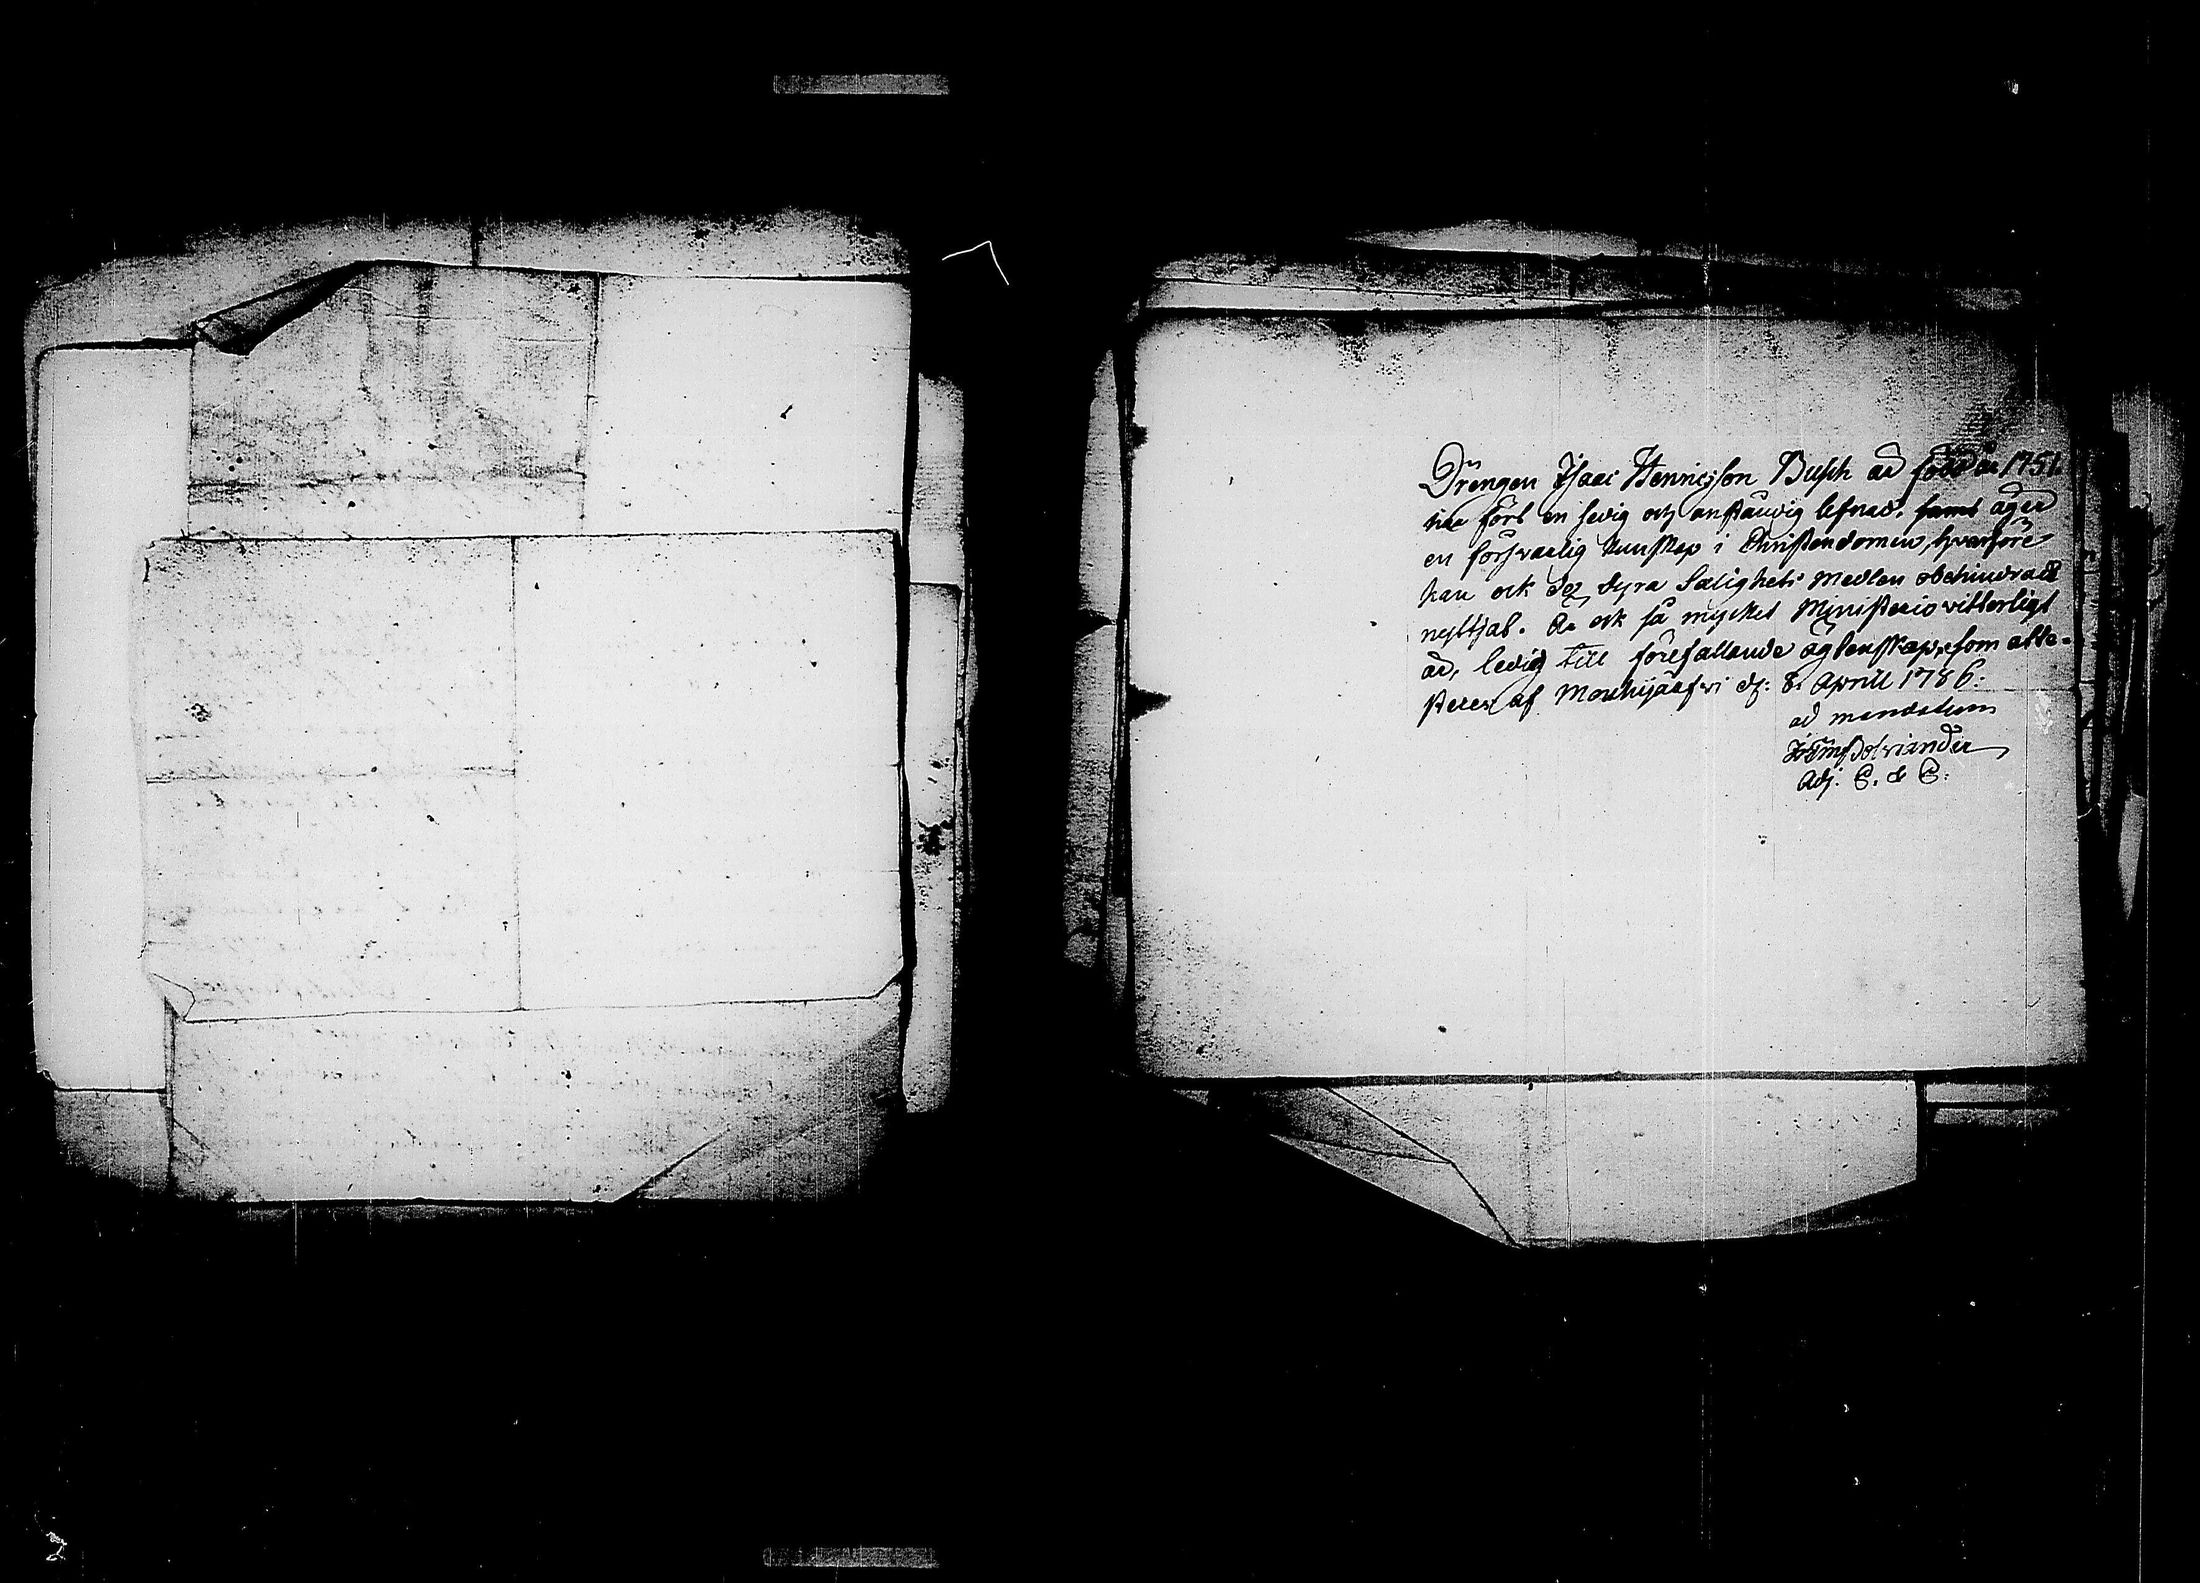 Drengen Isaac Hennicsson Busch är född år 1751
har fört en sedig och anständig lefnad, samt äger
en försvarlig kunskap i Christendomen, hvarföre
han ock dez dyra Salighets Medlen obehindradt
nyttjat. Är ock så mycket Ministerio vitterligt
är, ledig till förefallande äqtenskap, som atte-
steres af Mouhijärfvi d: 8. Aprill 1786:
ad mandatum
Adj. C. & C:
2